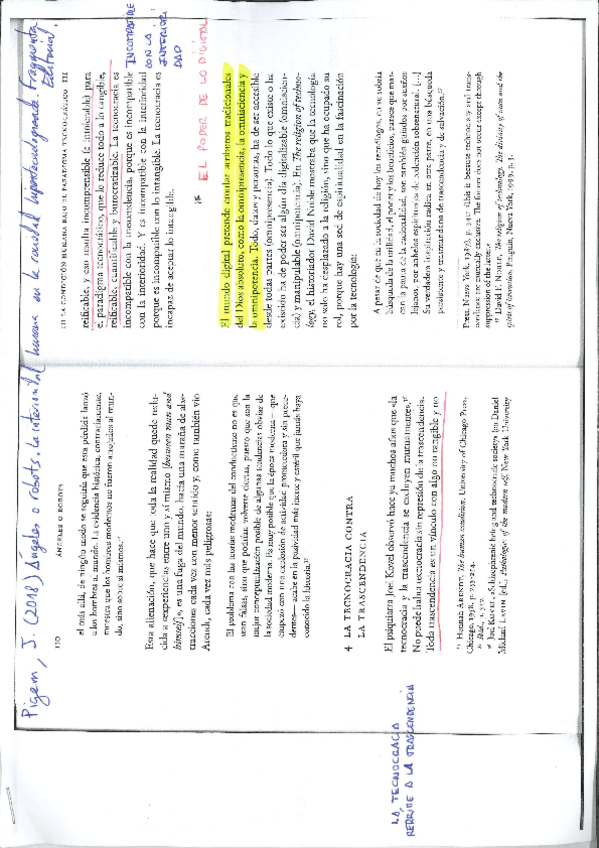 Pigem, J. (2018) Ángeles o robots. La interioridad humana en la sociedad hipertecnológica. Fragmenta Editorial.
130 ÁNGELES O ROBOTS
el más allá, de ningún modo se seguiría que esta pérdida lanzó
a los hombres al mundo. La evidencia histórica, contrariamente,
muestra que los hombres modernos no fueron arrojados al mun-
do, sino sobre sí mismos.
Esta alienación, que hace que toda la realidad quede redu-
cida a «experiencias entre uno y sí mismo [between man and
himself]», es una fuga del mundo, hacia una maraña de abs-
tracciones cada vez con menor sentido y, como también vio
Arendt, cada vez más peligrosas:
El problema con las teorías modernas del conductismo no es que
sean falsas, sino que podrían volverse ciertas, puesto que son la
mejor conceptualización posible de algunas tendencias obvias de
la sociedad moderna. Es muy posible que la época moderna —que
empezó con una explosión de actividad prometedora y sin prece-
dentes— acabe en la pasividad más inerte y estéril que jamás haya
conocido la historia.
4 LA TECNOCRACIA CONTRA
LA TRASCENDENCIA
El psiquiatra Joel Kovel observó hace ya muchos años que «la
tecnocracia y la trascendencia se excluyen mutuamente».
No puede haber tecnocracia sin represión de la trascendencia.
Toda trascendencia es un vínculo con algo no tangible y no
LA TECNOCRACIA
REPRIME A LA TRASCENDENCIA
Hannah Arendt, The human condition, University of Chicago Press,
Chicago, 1958, p. 253-254.
Ibid., p. 322.
Joel Kovel, «Schizophrenic being and technocratic society» (en David
Michael Levin (ed.), Pathologies of the modern self, New York University
III LA CONDICIÓN HUMANA BAJO EL PARADIGMA TECNOCRÁTICO 131
reificable, y eso resulta incomprensible (e intolerable) para
el paradigma tecnocrático, que lo reduce todo a lo tangible,
reificable, cuantificable y burocratizable. La tecnocracia es
incompatible con la trascendencia, porque es incompatible
con la interioridad. Y es incompatible con la interioridad
porque es incompatible con lo intangible. La tecnocracia es
incapaz de aceptar lo intangible.
INCOMPATIBLE
CON LA
INTERIORI
DAD
EL PODER DE LO DIGITAL
El mundo digital pretende emular atributos tradicionales
del Dios absoluto, como la omnipresencia, la omnisciencia y
la omnipotencia. Todo, datos y personas, ha de ser accesible
desde todas partes (omnipresencia). Todo lo que existe o ha
existido ha de poder ser algún día digitalizable (omniscien-
cia) y manipulable (omnipotencia). En The religion of techno-
logy, el historiador David Noble mostraba que la tecnología
no solo ha desplazado a la religión, sino que ha ocupado su
rol, porque hay una sed de espiritualidad en la fascinación
por la tecnología:
A pesar de que en la sociedad de hoy los tecnólogos, en su sobria
búsqueda de la utilidad, el poder y los beneficios, parece que mar-
can la pauta de la racionalidad, son también guiados por sueños
lejanos, por anhelos espirituales de redención sobrenatural. [...]
Su verdadera inspiración radica en otra parte, en una búsqueda
persistente y extramundana de trascendencia y de salvación.
Press, Nueva York, 1987), p. 341: «This is because technocracy and trans-
cendence are mutually exclusive. The former does not occur except through
suppression of the latter».
David F. Noble, The religion of technology. The divinity of man and the
spirit of invention, Penguin, Nueva York, 1999, p. 3.